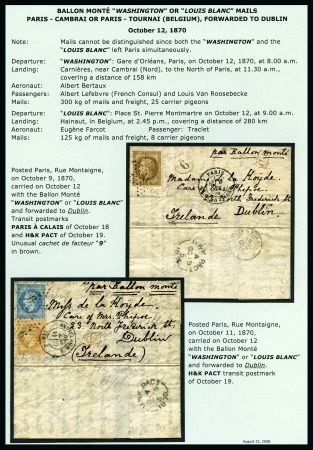 BALLON MONTÉ "WASHINGTON" OR "LOUIS BLANC" MAILS
PARIS - CAMBRAI OR PARIS - TOURNAI (BELGIUM), FORWARDED TO DUBLIN
October 12, 1870
Note: Mails cannot be distinguished since both the "WASHINGTON" and the
"LOUIS BLANC" left Paris simultaneously.
Departure: "WASHINGTON": Gare d'Orléans, Paris, on October 12, 1870, at 8.00 a.m.
Landing: Carnières, near Cambrai (Nord), to the North of Paris, at 11.30 a.m.,
covering a distance of 158 km
Aeronaut: Albert Bertaux
Passengers: Albert Lefebvre (French Consul) and Louis Van Roosebecke
Mails: 300 kg of mails and freight, 25 carrier pigeons
Departure: "LOUIS BLANC": Place St. Pierre Montmartre on October 12, at 9.00 a.m.
Landing: Hainaut, in Belgium, at 2.45 p.m., covering a distance of 280 km
Aeronaut: Eugène Farcot Passenger: Traclet
Mails: 125 kg of mails and freight, 8 carrier pigeons
Posted Paris, Rue Montaigne,
on October 9, 1870,
carried on October 12
with the Ballon Monté
"WASHINGTON" or "LOUIS BLANC"
and forwarded to Dublin.
Transit postmarks
PARIS À CALAIS of October 18
and H&K PACT of October 19.
Unusual cachet de facteur "9"
in brown.
par Ballon monté
Care of Mrs
North Frederick St
Dublin
Irelande
par Ballon monté
Miss de la
Care of Mrs
23 North Frederick St.
Dublin
(Irelande)
Posted Paris, Rue Montaigne,
on October 11, 1870,
carried on October 12
with the Ballon Monté
"WASHINGTON" or "LOUIS BLANC"
and forwarded to Dublin.
H&K PACT transit postmark
of October 19.
August 23, 2008